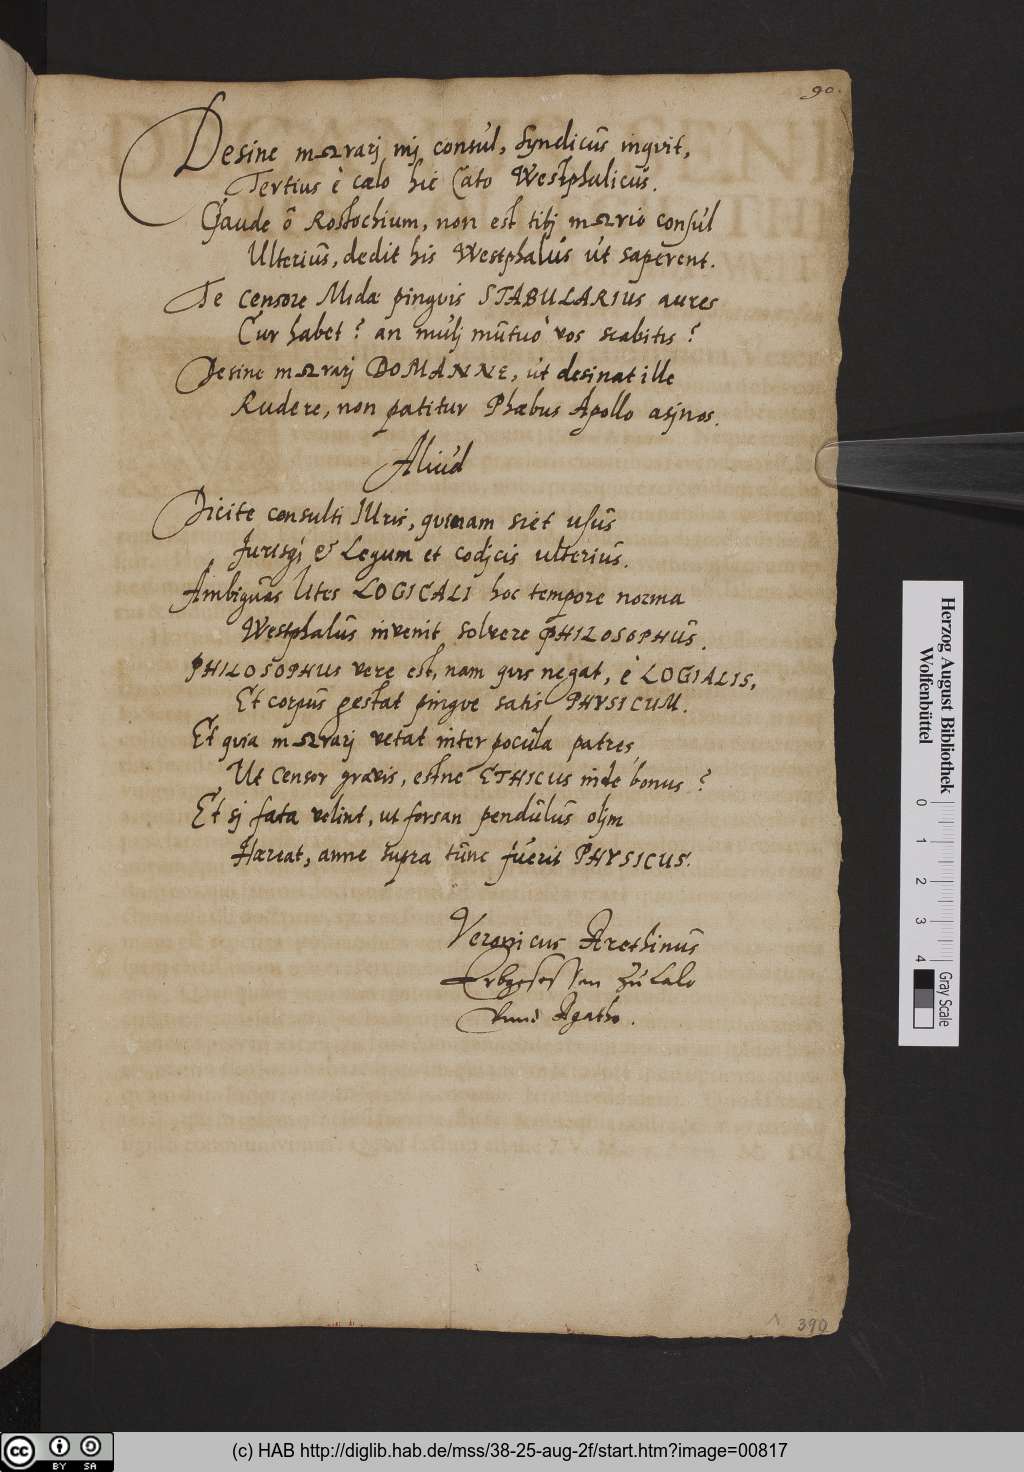 90.
Desine mΩrarj mj consul, Syndicus inqvit,
Tertius è cælo hic Cato Westphalicus.
Gaude ô Rostochium, non est tibj mΩrio consul
Ulterius, dedit his Westphalus ut saperent.
Te censore Midæ pingvis STABULARIUS aures
Cur habet? an mulj mutuò vos scabitis?
Desine mΩrarj DOMANNE, ut desinat ille
Rudere, non patitur Phœbus Apollo asjnos.
Aliud
Dicite consulti IUris, qvisnam siet usus
Jurisqꝫ & Legum et codjcis ulterius.
Ambiguas lites LOGICALI hoc tempore norma
Westphalus invenit solvere PHILOSOPHUS.
PHILOSOPHUS vere est, nam qvis negat, è LOGIALIS,
Et corpus gestat pingve satis PHYSICUM.
Et qvia mΩrarj vetat inter pocula patres
Ut Censor gravis, estne ETHICUS inde bonus?
Et sj fata velint, ut forsan pendulus oljm
Hæreat, anne supra tunc fuerit PHYSICUS.
Arethinus
Erbgesessen zu Lalo
Agatho.
390
Herzog August Bibliothek
Wolfenbüttel
0 1 2 3 4
Gray Scale
cc BY SA
(c) HAB http://diglib.hab.de/mss/38-25-aug-2f/start.htm?image=00817